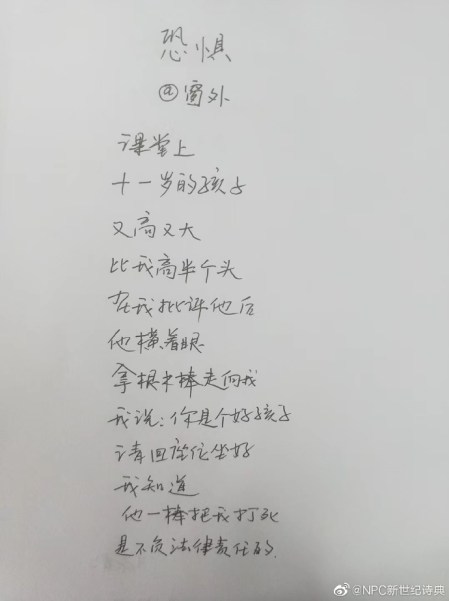 恐惧
@窗外
课堂上
十一岁的孩子
又高又大
比我高半个头
在我批评他后
他横着眼
拿根木棒走向我
我说：你是个好孩子
请回座位坐好
我知道
他一棒把我打死
是不负法律责任的
@NPC新世纪诗典